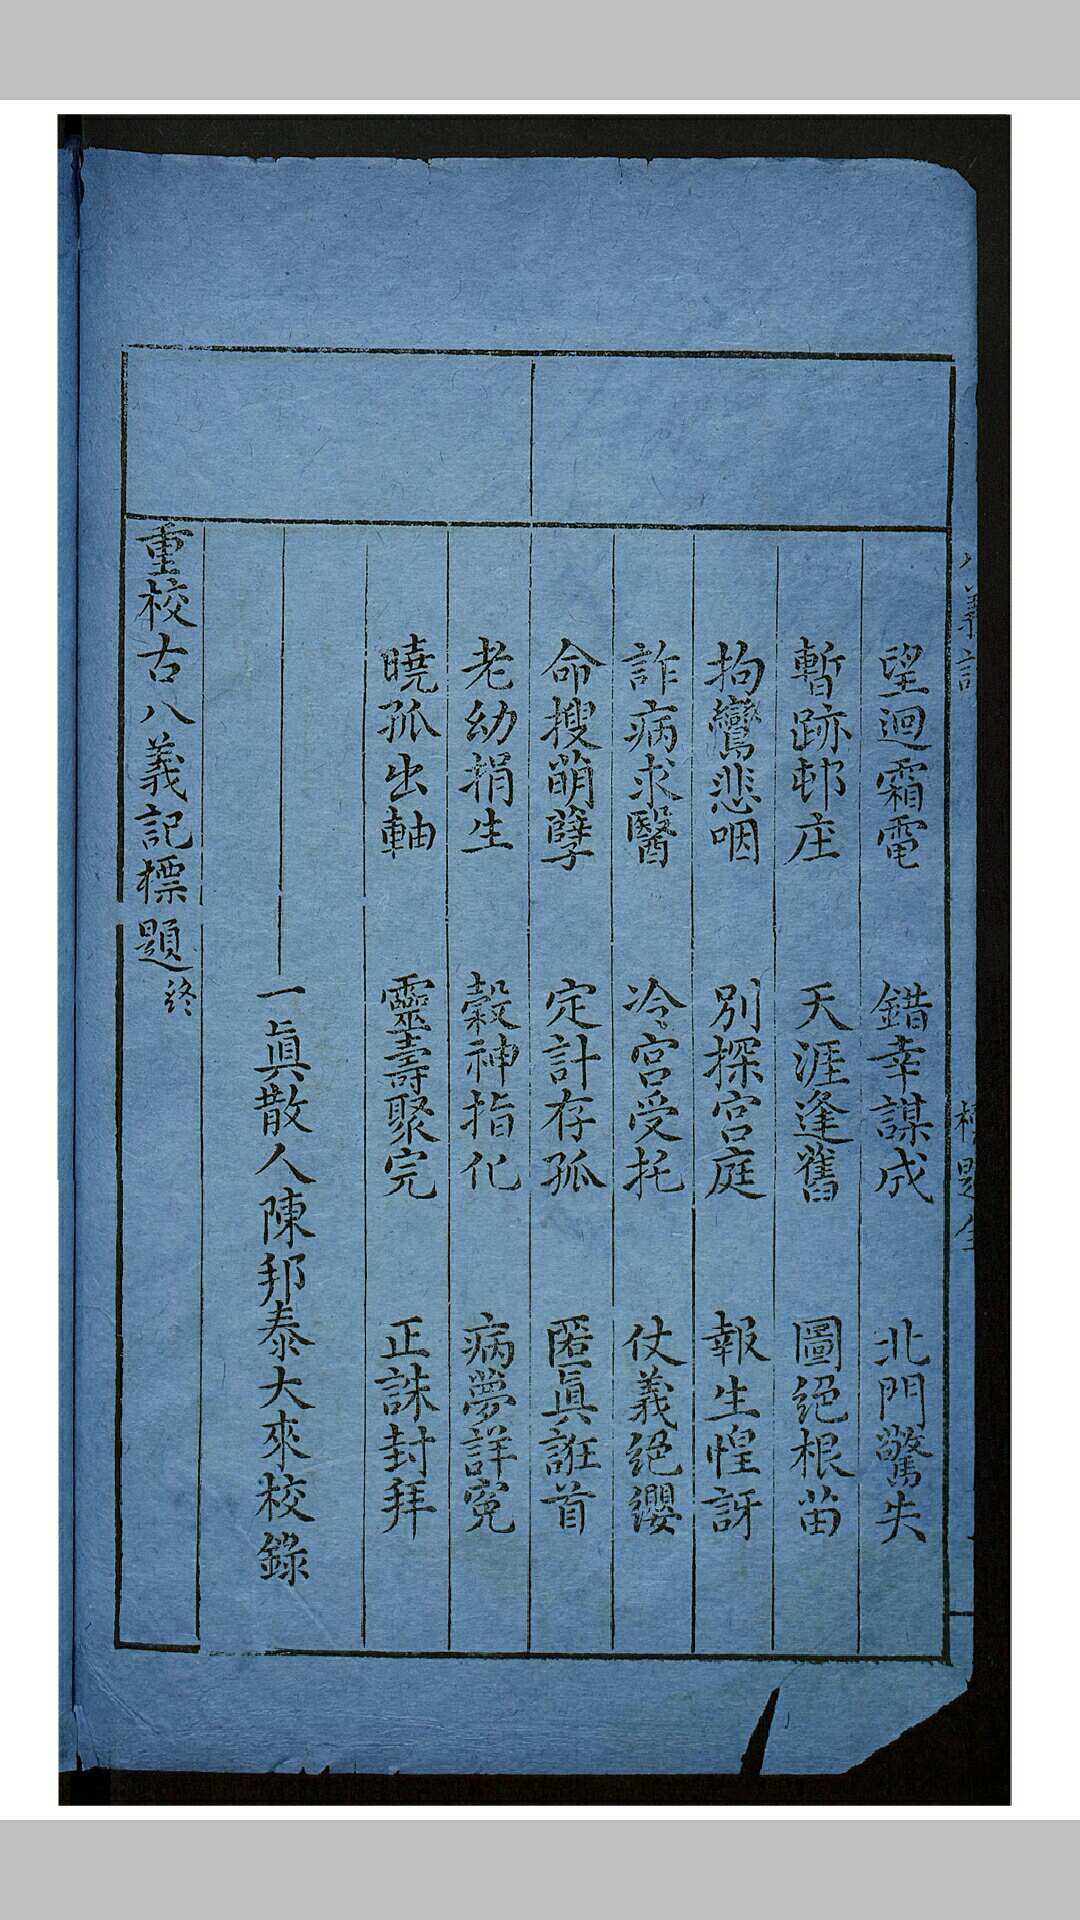 望迴霜電 錯幸謀成 北門驚失
暫跡邨庄 天涯逢舊 圖絕根苗
拘鸞悲咽 別探宮庭 報生惶訝
詐病求醫 冷宮受托 仗義絕纓
命搜萌孽 定計存孤 匿眞誑首
老幼捐生 穀神指化 病夢詳寃
曉孤出軸 靈壽聚完 正誅封拜
一眞散人陳邦泰大來校錄
重校古八義記標題終